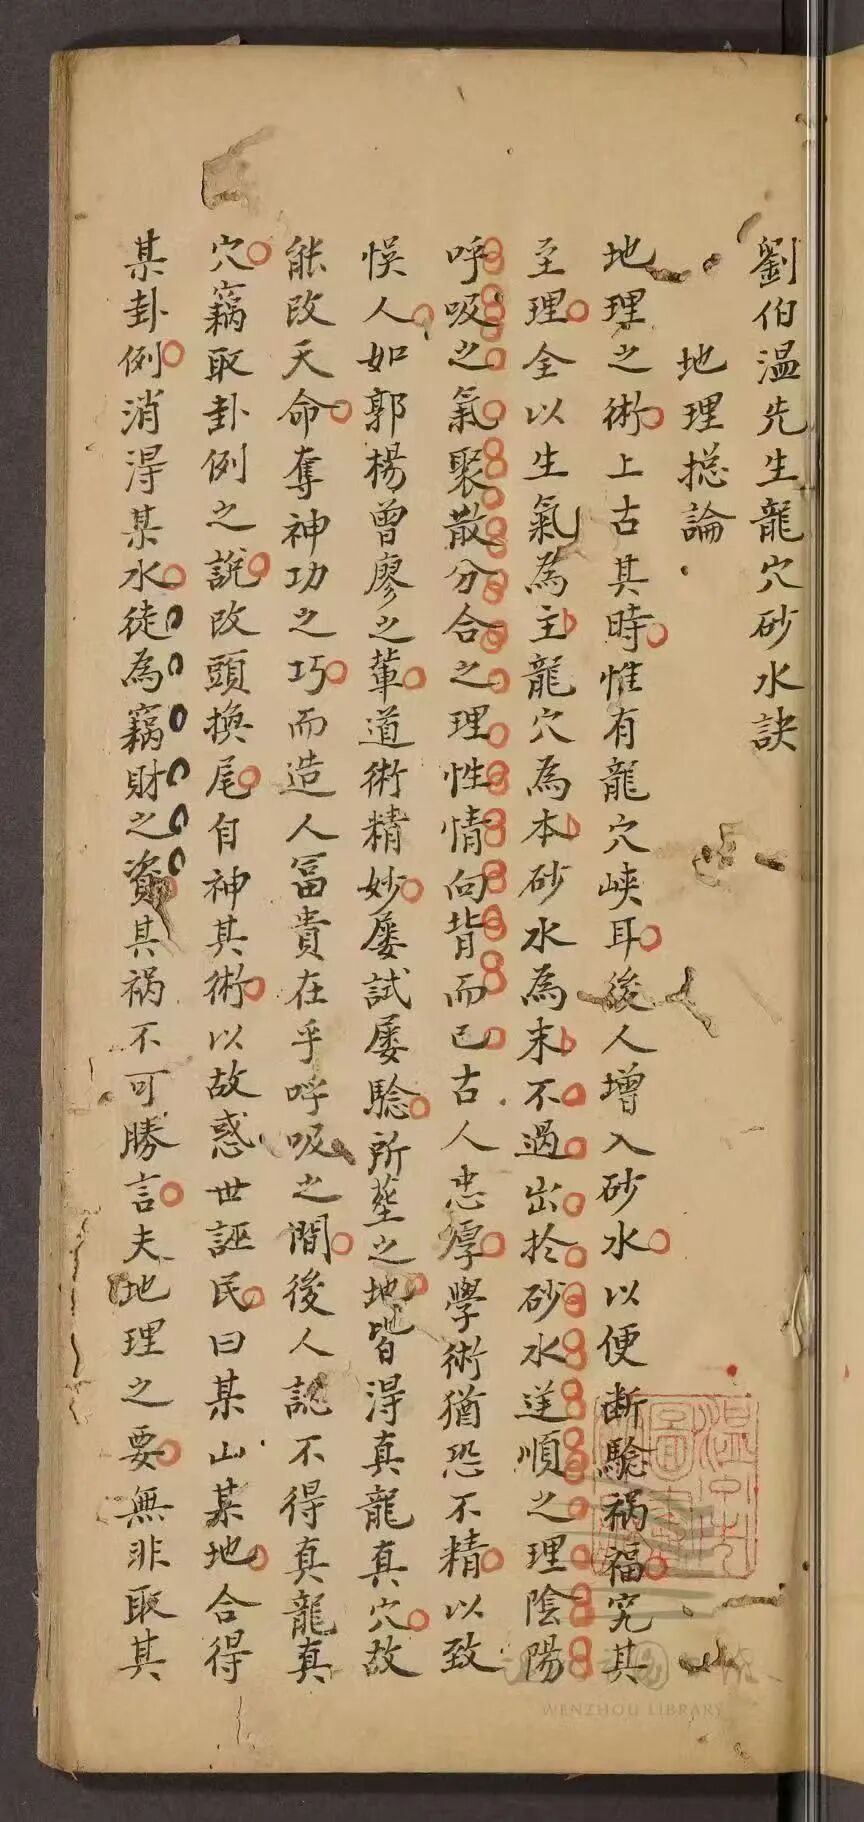 劉伯温先生龍穴砂水訣
地理捴論
地理之術上古其時惟有龍穴峽耳後人增入砂水以便断驗禍福究其
至理全以生氣為主龍穴為本砂水為末不過出於砂水逆順之理陰陽
呼吸之氣聚散分合之理性情向背而已古人忠厚學術猶恐不精以致
悞人如郭楊曾廖之輩道術精妙屡試屡驗所塟之地皆淂真龍真穴故
能改天命奪神功之巧而造人冨貴在乎呼吸之間後人認不得真龍真
穴竊取卦例之說改頭換尾自神其術以故惑世誣民曰某山某地合得
某卦例消淂某水徒為竊財之資其禍不可勝言夫地理之要無非取其
WENZHOU LIBRARY